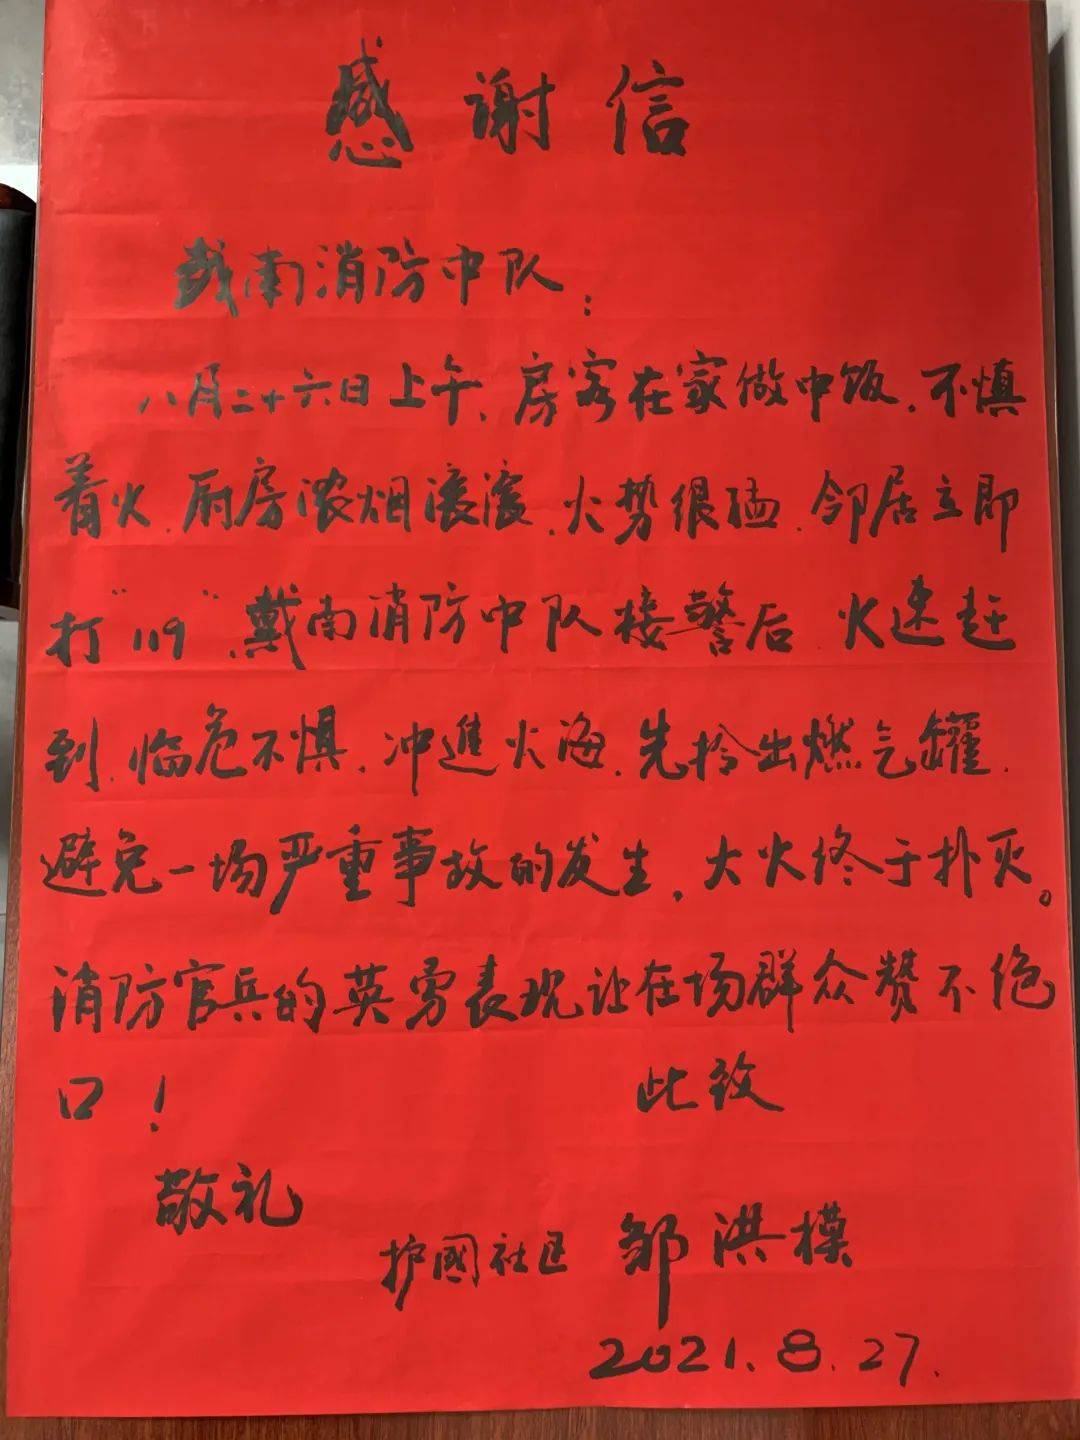 感谢信
戴南消防中队:
八月二十六日上午、房客在家做中饭、不慎
着火、厨房浓烟滚滚、火势很猛、邻居立即
打"119"、戴南消防中队接警后、火速赶
到、临危不惧、冲進火海、先拎出燃气罐、
避免一场严重事故的发生,大火终于扑灭。
消防官兵的英勇表现让在场群众赞不绝
口! 此致
敬礼
护國社区 邹洪模
2021.8.27.